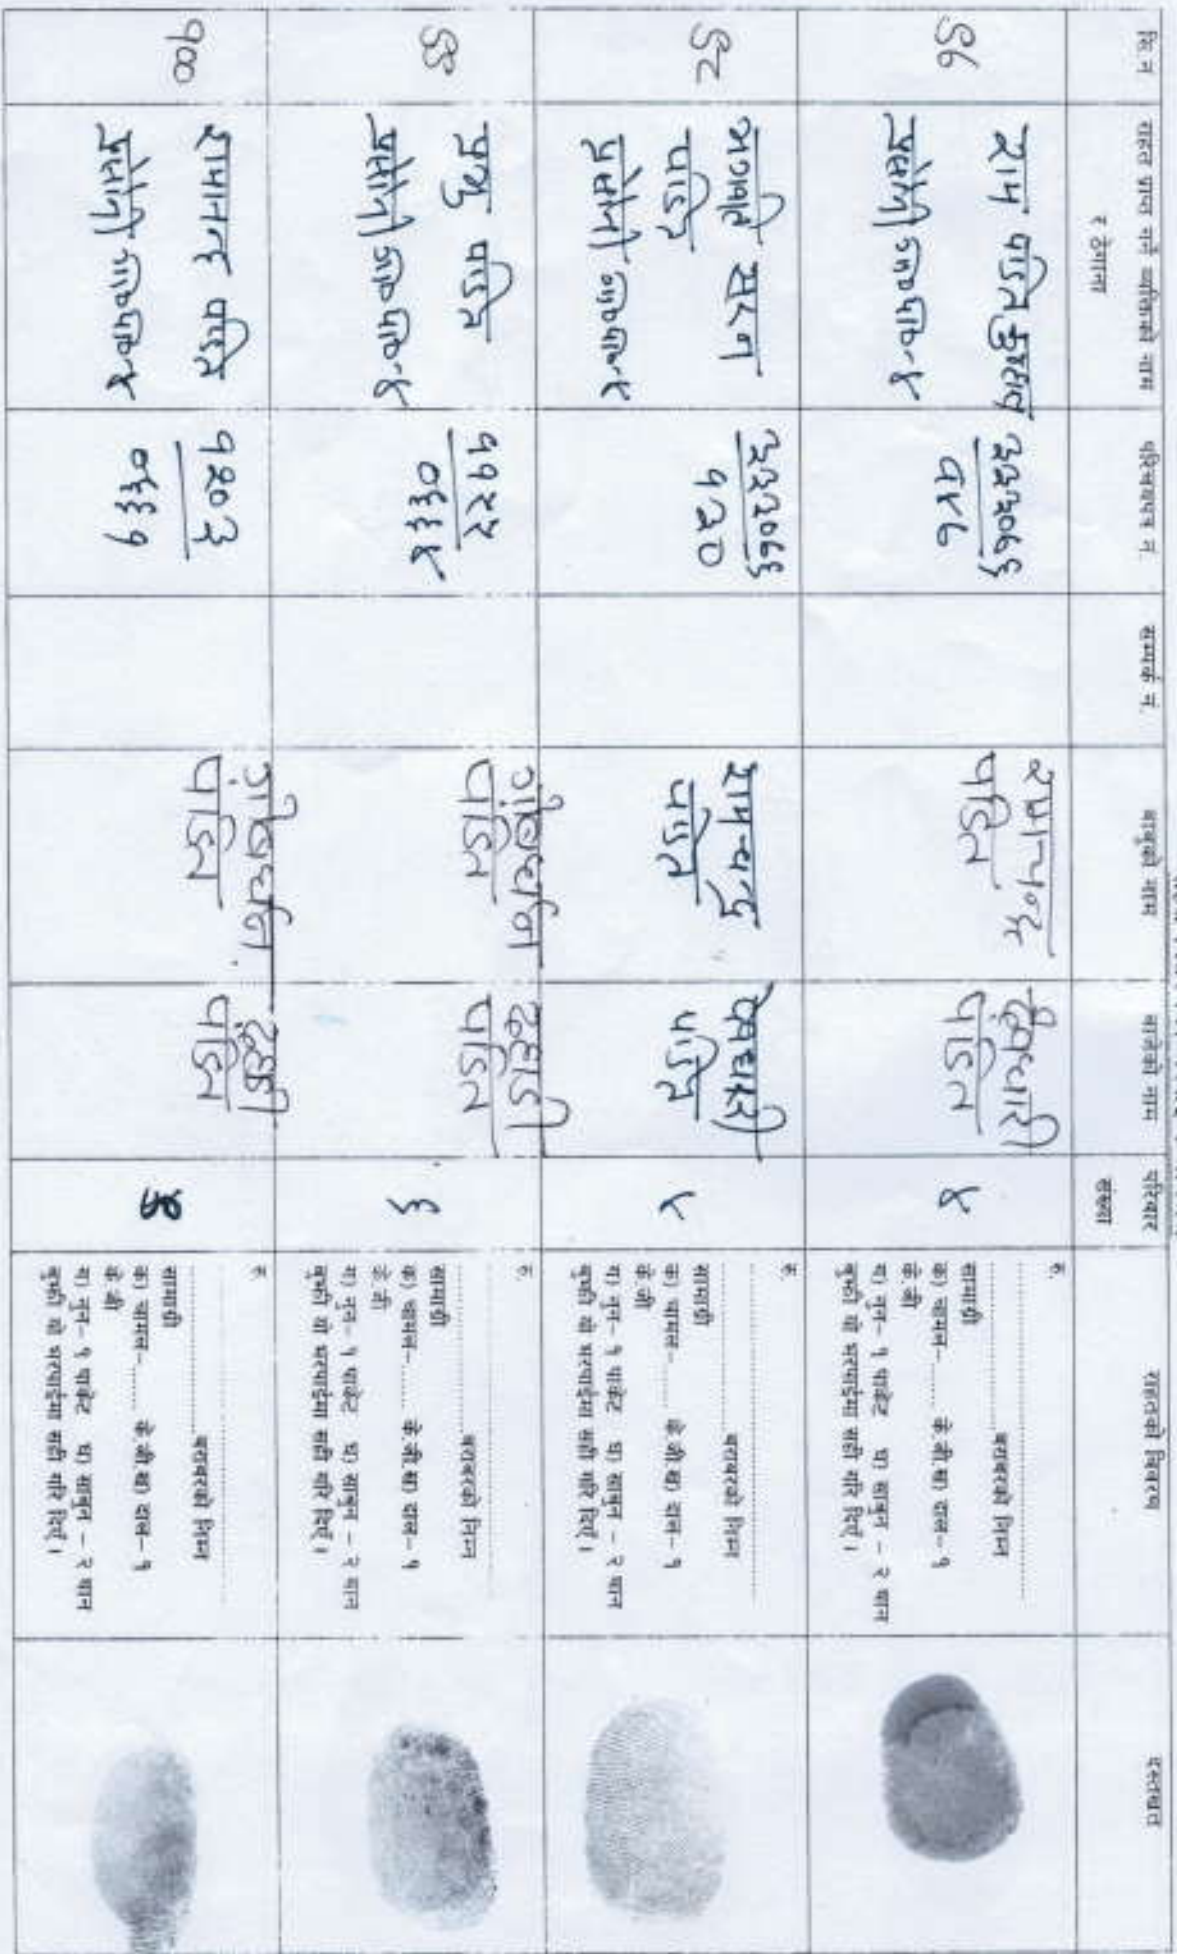 सि.न राहत प्राप्त गर्ने व्यक्तिको नाम परिचयपत्र नं. सम्पर्क नं. बाबुको नाम बाजेको नाम परिवार राहतको विवरण दस्तखत
र ठेगाना संख्या
९७
राम पंडित कुम्हाल
प्रसौनी गा०पा०-४
३३३०७६
७५८
रामचन्द्र
पंडित
पंडित
४
रु.
बराबरको निम्न
सामाग्री
क) चामल-....... के.जी.ख) दाल- १
के.जी
ग) नुन- १ पाकेट घ) साबुन – २ थान
बुझी यो भरपाईमा सही गरि दिएँ ।
९८
पंडित
प्रसौनी गा०पा०-४
३३३०७६
१३०
रामचन्द्र
पंडित
पंडित
५
रु.
बराबरको निम्न
सामाग्री
क) चामल-....... के.जी.ख) दाल- १
के.जी
ग) नुन- १ पाकेट घ) साबुन – २ थान
बुझी यो भरपाईमा सही गरि दिएँ ।
९९
प्रभु पंडित
प्रसौनी गा०पा०-४
११२२
०६६४
पंडित
पंडित
६
रु.
बराबरको निम्न
सामाग्री
क) चामल-....... के.जी.ख) दाल- १
के.जी
ग) नुन- १ पाकेट घ) साबुन – २ थान
बुझी यो भरपाईमा सही गरि दिएँ ।
१००
रामानन्द पंडित
प्रसौनी गा०पा०-४
१२०३
०६६१
पंडित
पंडित
रु.
बराबरको निम्न
सामाग्री
क) चामल-....... के.जी.ख) दाल- १
के.जी
ग) नुन- १ पाकेट घ) साबुन – २ थान
बुझी यो भरपाईमा सही गरि दिएँ ।